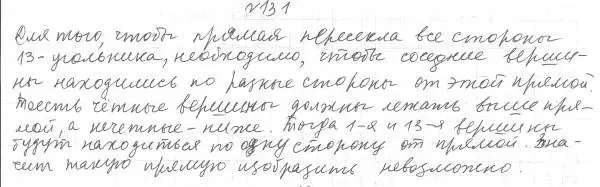 №131
Для того, чтобы прямая пересекла все стороны
13-угольника, необходимо, чтобы соседние верши-
ны находились по разные стороны от этой прямой.
Тоесть чётные вершины должны лежать выше пря-
мой, а нечетные - ниже. Тогда 1-я и 13-я вершины
будут находиться по одну сторону от прямой. Зна-
чит такую прямую изобразить невозможно.